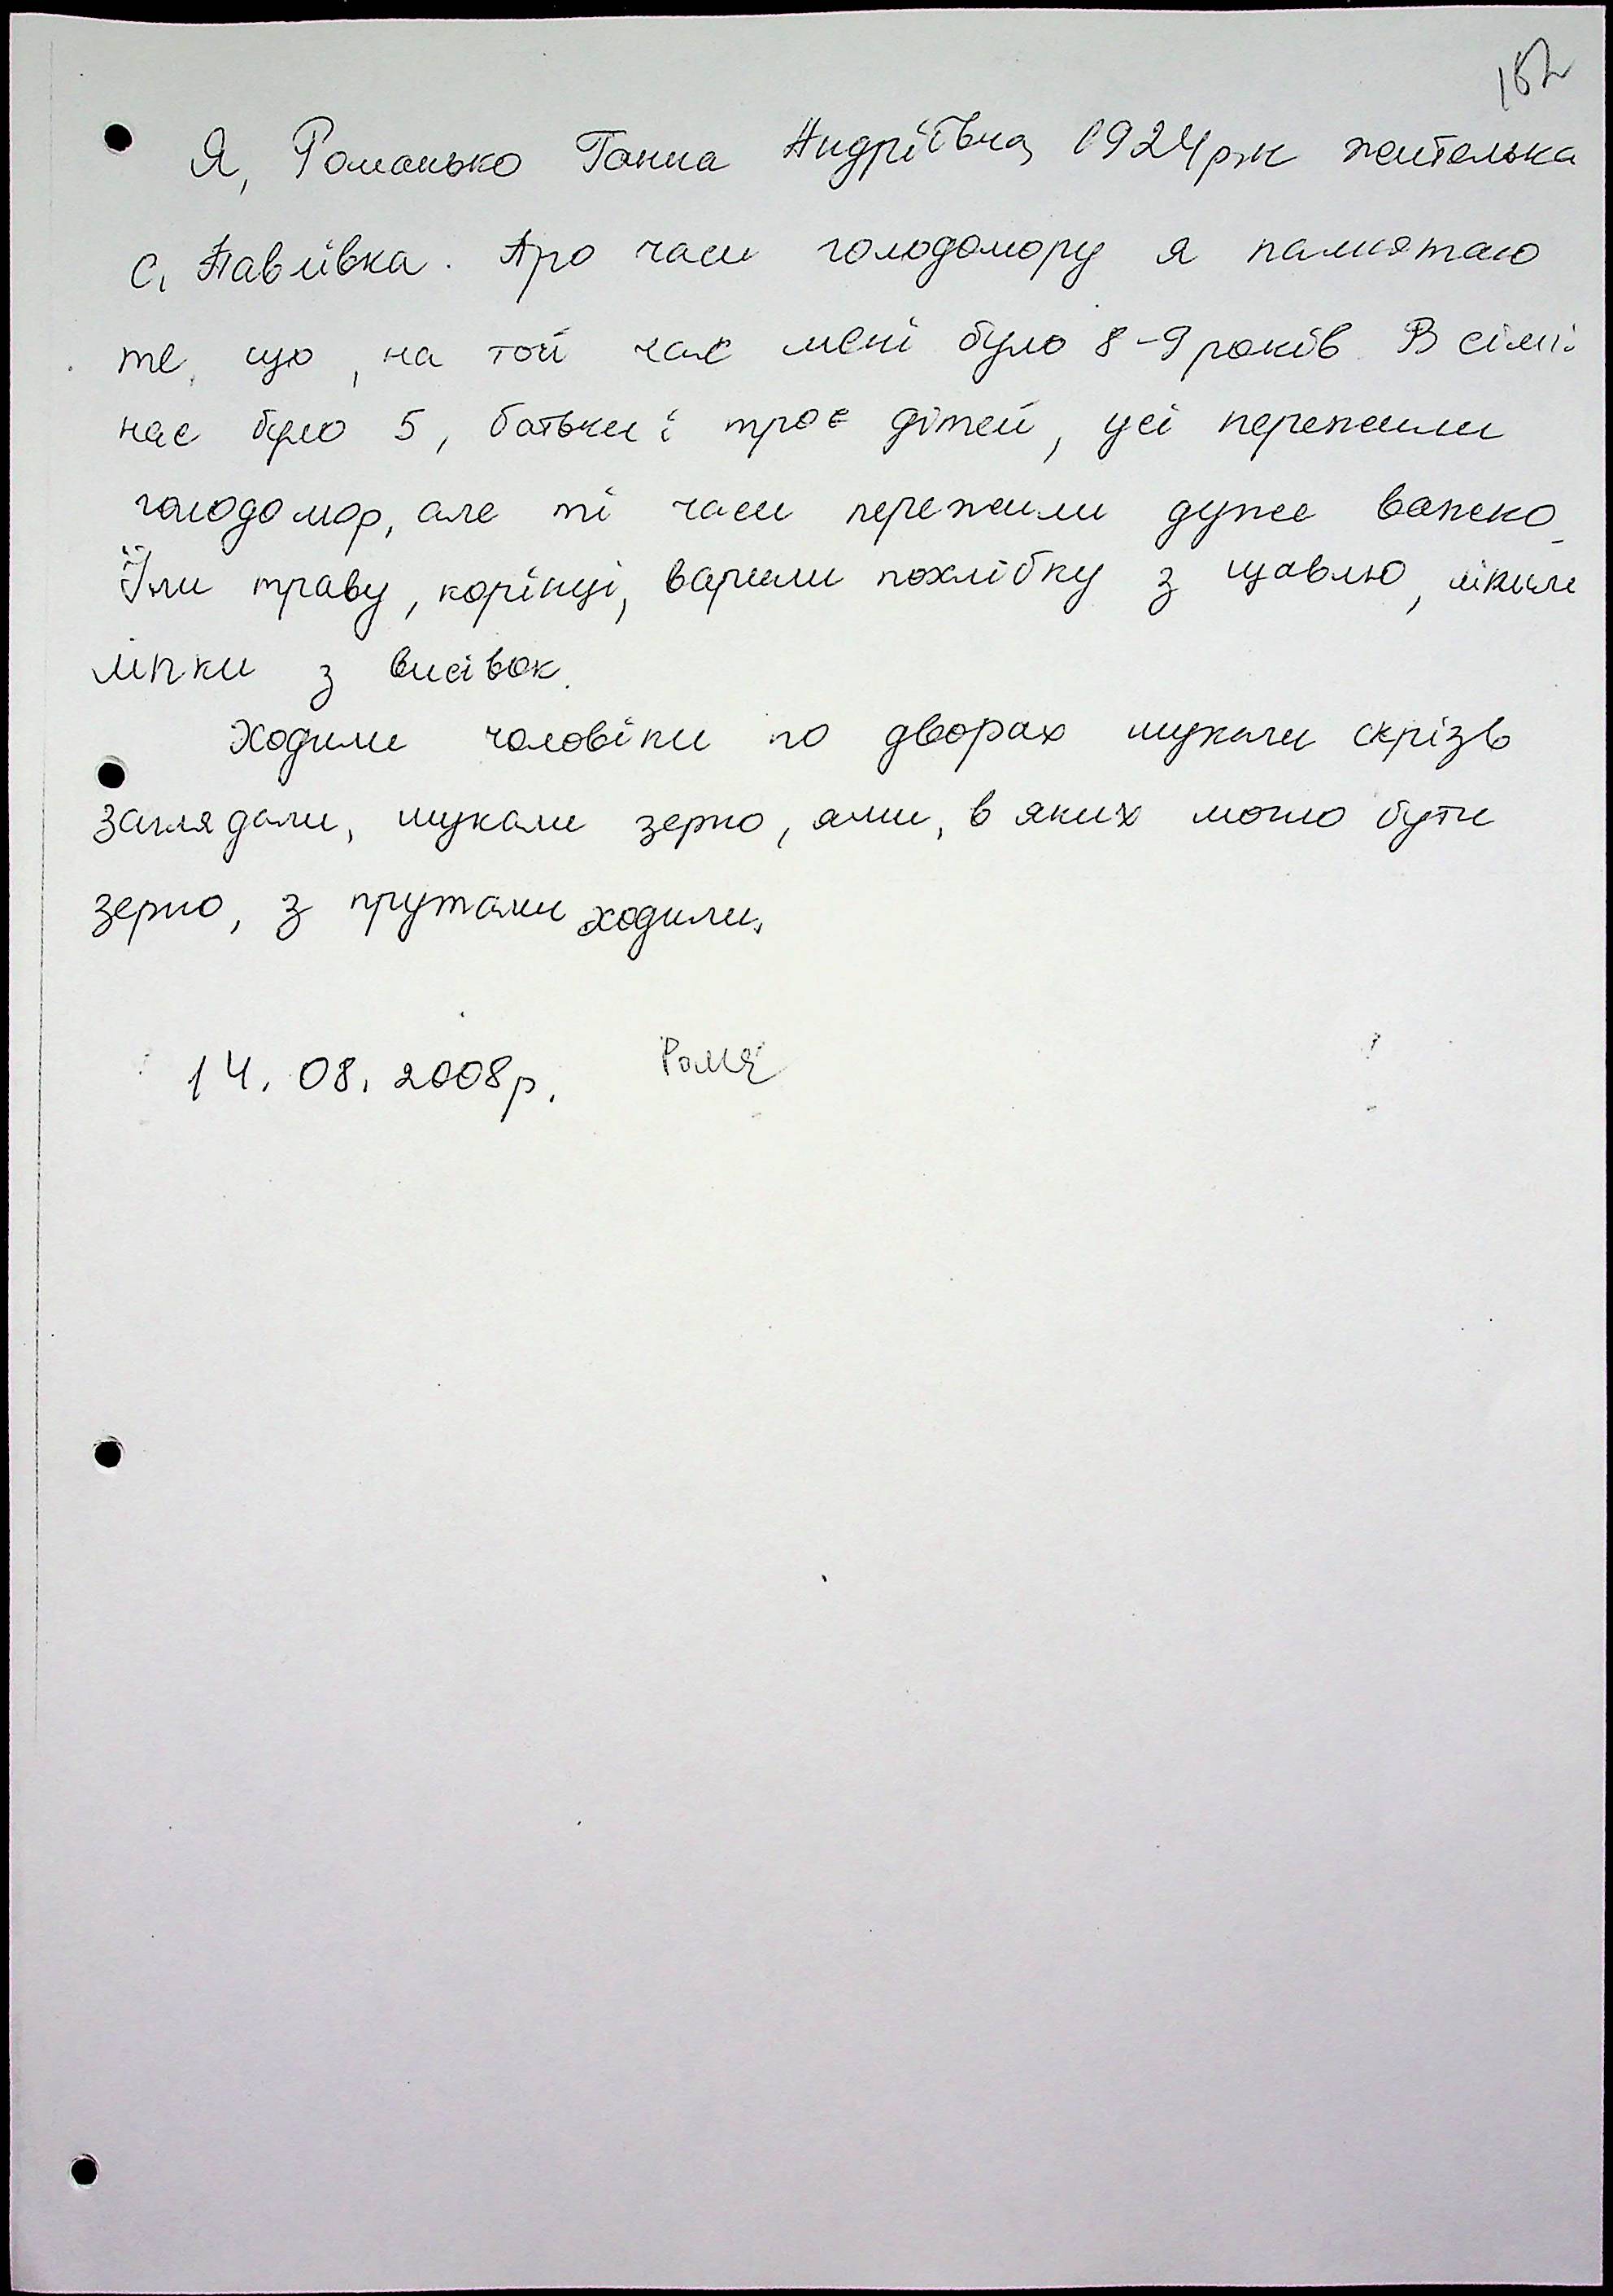 182
Я, Романько Ганна Андріївна, 1924 рж жителька
с. Павлівка. Про часи голодомору я памиятаю
те, що, на той час мені було 8-9 років. В сімї
нас було 5, батьки і троє дітей, усі пережили
голодомор, але ті часи пережили дуже важко.
Їли траву, корінці, варили похлібку з щавлю, ліпили
ліпки з висівок.
Ходили чоловіки по дворах шукали скрізь
заглядали, шукали зерно, ями, в яких могло бути
зерно, з прутами ходили.
14. 08. 2008р.